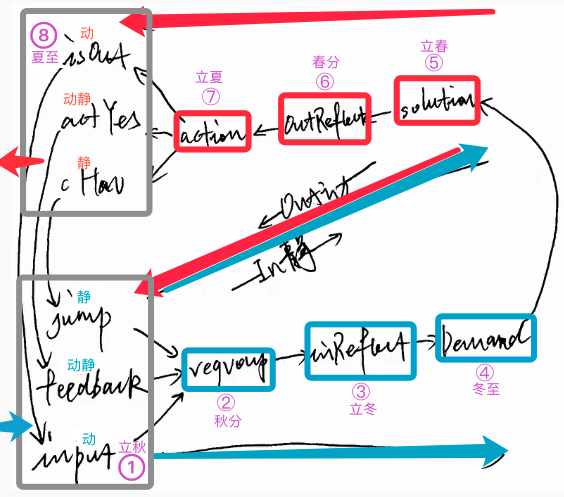 ⑧
夏至
动
isOut
动静
actYes
静
立夏
⑦
action
春分
⑥
outReflect
立春
⑤
solution
In静
静
jump
动静
feedback
动
input
立秋
①
regroup
②
秋分
inReflect
③
立冬
Demand
④
冬至